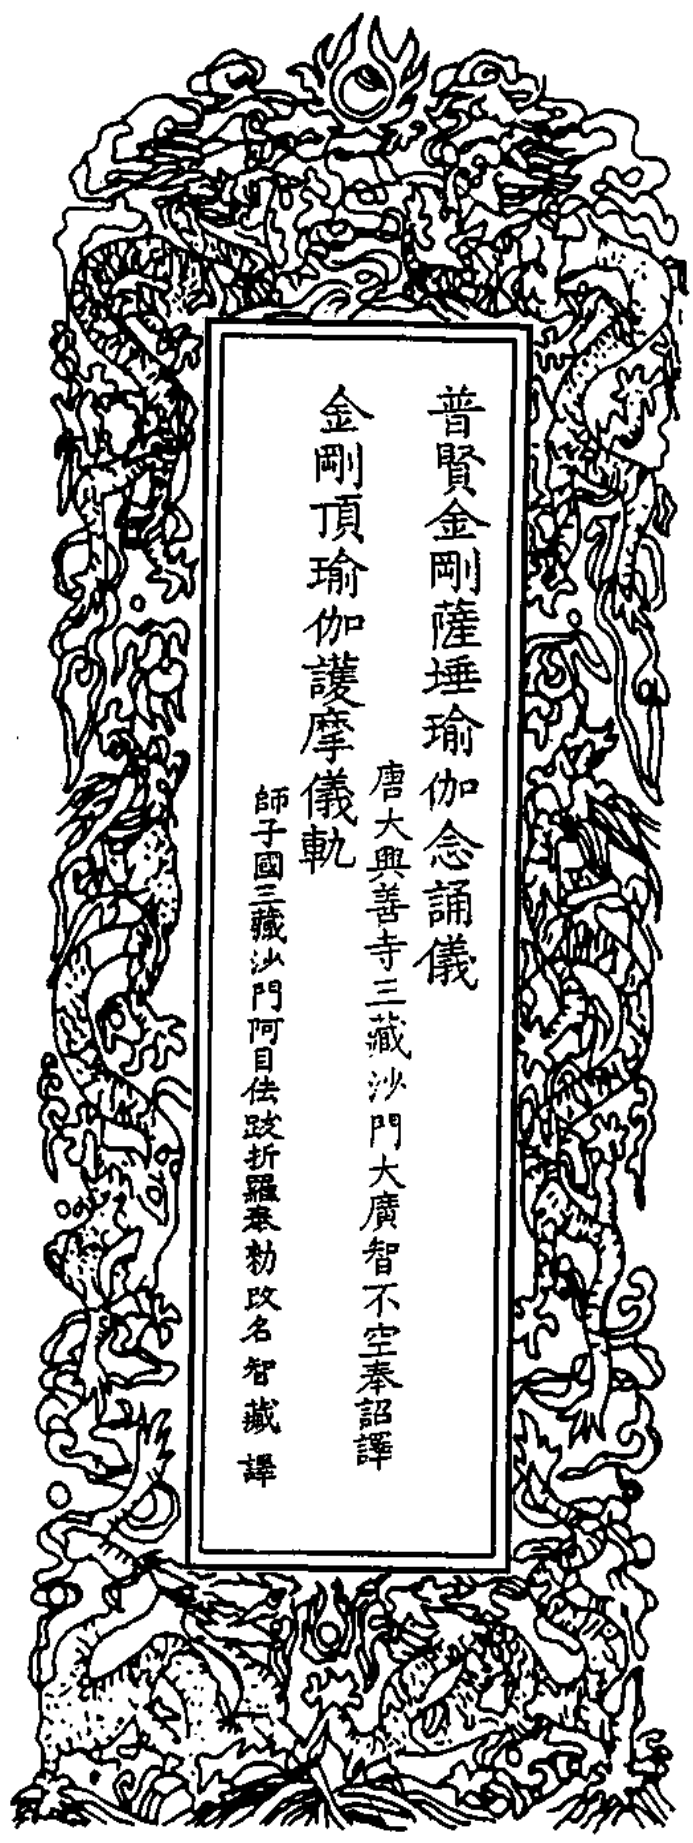 普賢金剛薩埵瑜伽念誦儀
唐大興善寺三藏沙門大廣智不空奉詔譯
金剛頂瑜伽護摩儀軌
師子國三藏沙門阿目佉跋折羅奉勅改名智藏譯